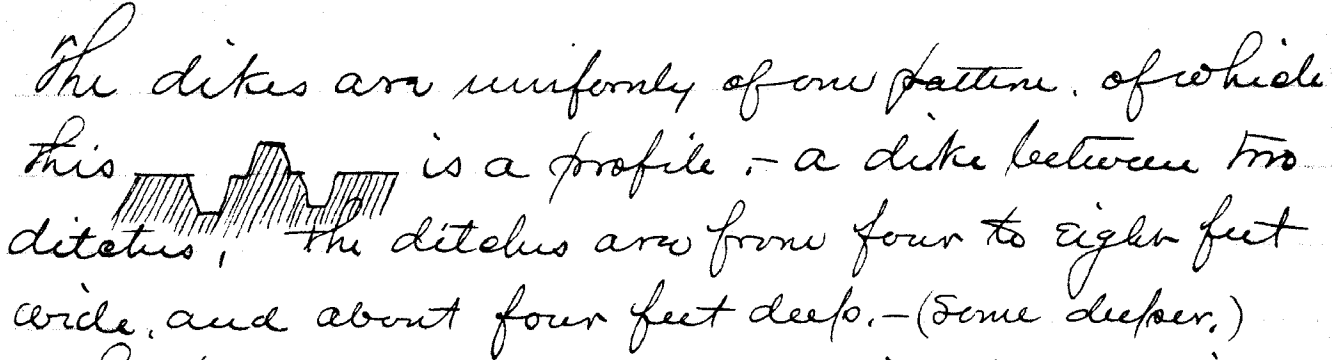 The dikes are uniformly of one pattern, of which
this is a profile, – a dike between two
ditches, The ditches are from four to eight feet
wide, and about four feet deep. – (Some deeper.)